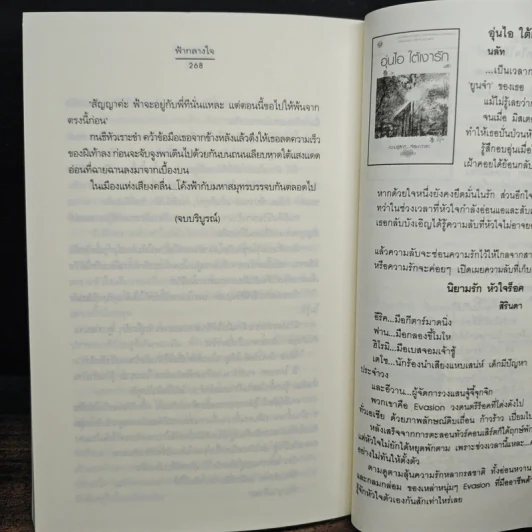 ฟ้ากลางใจ
268
'สัญญาค่ะ ฟ้าจะอยู่กับพี่ที่นั่นแหละ แต่ตอนนี้ขอไปให้พ้นจาก
ตรงนี้ก่อน'
กนธีหัวเราะขำ คว้าข้อมือเธอจากข้างหลังแล้วดึงให้เธอลดความเร็ว
ของฝีเท้าลง ก่อนจะจับจูงพาเดินไปด้วยกันบนถนนเลียบหาดใต้แสงแดด
อ่อนที่ฉายฉานลงมาจากเบื้องบน
ในเมืองแห่งเสียงคลื่น...โค้งฟ้ากับมหาสมุทรบรรจบกันตลอดไป
(จบบริบูรณ์)
อุ่นไอ ใต้เงารัก
อุ่นไอ ใต้
นลัท
...เป็นเวลาก
'ยูนจำ' ของเธอ
แม้ไม่รู้เลยว่า
จนเมื่อ มิสเต
ทำให้เธอปั่นป่วนหัว
รู้สึกอบอุ่นเมื่อ
เฝ้าคอยได้ย้อนกลับ
หากด้วยใจหนึ่งยังคงยึดมั่นในรัก ส่วนอีกใจ
ทว่าในช่วงเวลาที่หัวใจกำลังอ่อนแอและสับ
เธอกลับบังเอิญได้รู้ความลับที่หัวใจไม่อาจยอ
แล้วความลับจะซ่อนความรักไว้ให้ไกลจากสา
หรือความรักจะค่อยๆ เปิดเผยความลับที่เก็บ
นิยามรัก หัวใจร็อค
สิรินดา
อีริค...มือกีตาร์มาดนิ่ง
ฟาน...มือกลองขี้โมโห
ฮิโรมิ...มือเบสจอมเจ้าชู้
เตโช...นักร้องนำเสียงแหบเสน่ห์ เด็กมีปัญหา
ประจำวง
และอีวาน...ผู้จัดการวงแสนจู้จี้จุกจิก
พวกเขาคือ Evasion วงดนตรีร็อคที่โด่งดังไป
ทั่วเอเชีย ด้วยภาพลักษณ์ดิบเถื่อน ก้าวร้าว เปี่ยมไป
หลังเสร็จจากการตะลอนทัวร์คอนเสิร์ตก็ได้ฤกษ์พัก
แต่หัวใจไม่ยักได้หยุดพักตาม เพราะช่วงเวลานี้แหละ...
อย่างไม่ทันให้ตั้งตัว
ตามดูตามลุ้นความรักหลากรสชาติ ทั้งอ่อนหวาน
และกลมกล่อม ของเหล่าหนุ่มๆ Evasion ที่มีอาชีพด้
รู้จักหัวใจตัวเองกันสักเท่าไหร่เลย